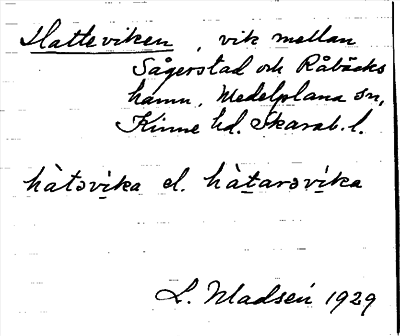 Hatteviken, vik mellan
Sågerstad och Råbäcks
hamn, Medelplana sn,
Kinne hd. Skarab. l.
hàtəvi̱ka el. hàt̲arəvi̱ka
L. Madsén 1929